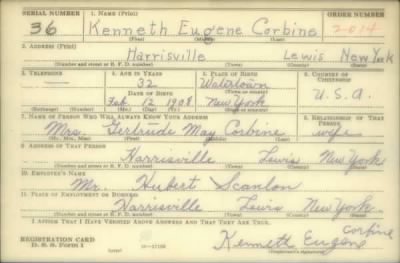 SERIAL NUMBER 1. NAME (Print) ORDER NUMBER
36 Kenneth Eugene Corbine 2014
(First) (Middle) (Last)
2. ADDRESS (Print)
Harrisville Lewis New York
(Number and street or R. F. D. number) (Town) (County) (State)
3. TELEPHONE 4. AGE IN YEARS 5. PLACE OF BIRTH 6. COUNTRY OF CITIZENSHIP
32 Watertown
DATE OF BIRTH (Town or county)
Feb 12 1908 New York U.S.A.
(Exchange) (Number) (Mo.) (Day) (Yr.) (State or country)
7. NAME OF PERSON WHO WILL ALWAYS KNOW YOUR ADDRESS 8. RELATIONSHIP OF THAT PERSON
Mrs. Gertrude May Corbine wife
(Mr., Mrs., Miss) (First) (Middle) (Last)
9. ADDRESS OF THAT PERSON
Harrisville Lewis New York
(Number and street or R. F. D. number) (Town) (County) (State)
10. EMPLOYER'S NAME
Mr. Hubert Scanlon
11. PLACE OF EMPLOYMENT OR BUSINESS
Harrisville Lewis New York
(Number and street or R. F. D. number) (Town) (County) (State)
I AFFIRM THAT I HAVE VERIFIED ABOVE ANSWERS AND THAT THEY ARE TRUE.
REGISTRATION CARD
D. S. S. Form 1 (over) Kenneth Eugene Corbine
(Registrant's signature)